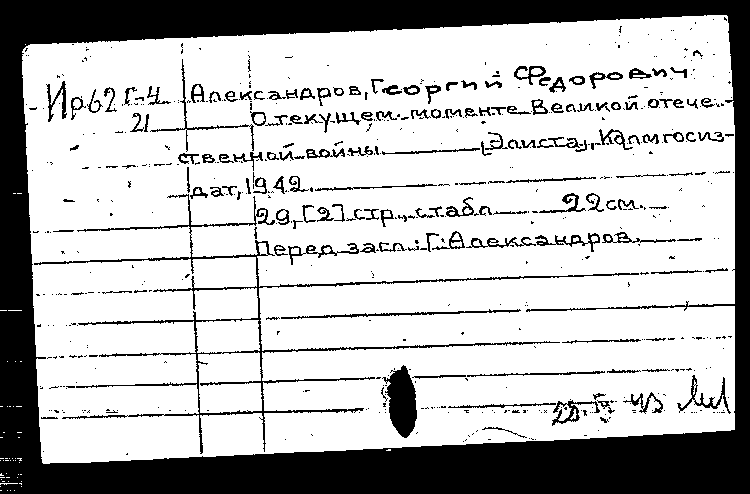 Ир62 Г-4 Александров, Георгий Федорович
21 О текущем моменте Великой отече-
ственной войны. [Элиста], Калмгосиз-
дат, 1942.
29, [2] стр., с табл 22 см.
Перед загл.: Г. Александров.